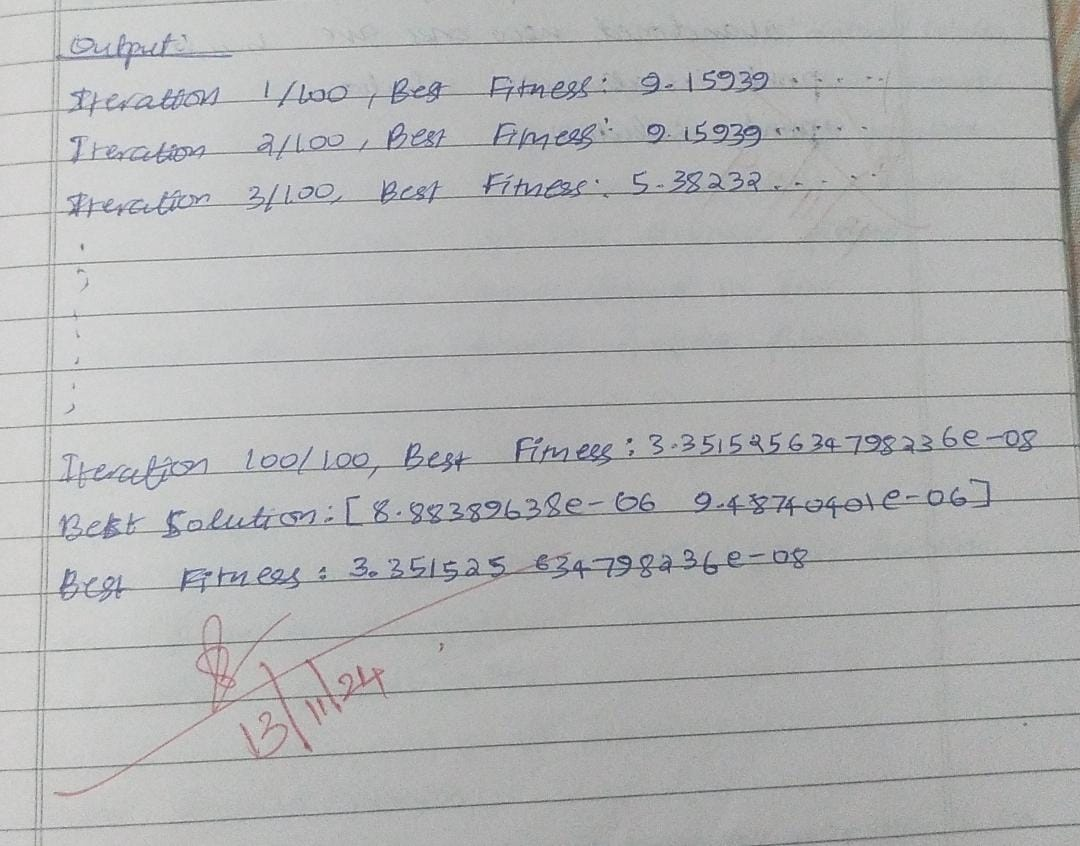 Output:
Iteration 1/100, Best Fitness: 9.15939.....
Iteration 2/100, Best Fitness: 9.15939.....
Iteration 3/100, Best Fitness: 5.38232.....
Iteration 100/100, Best Fitness: 3.351525634798236e-08
Best Solution: [8.88389638e-06 9.48740401e-06]
Best Fitness: 3.351525 634798236e-08
13/11/24